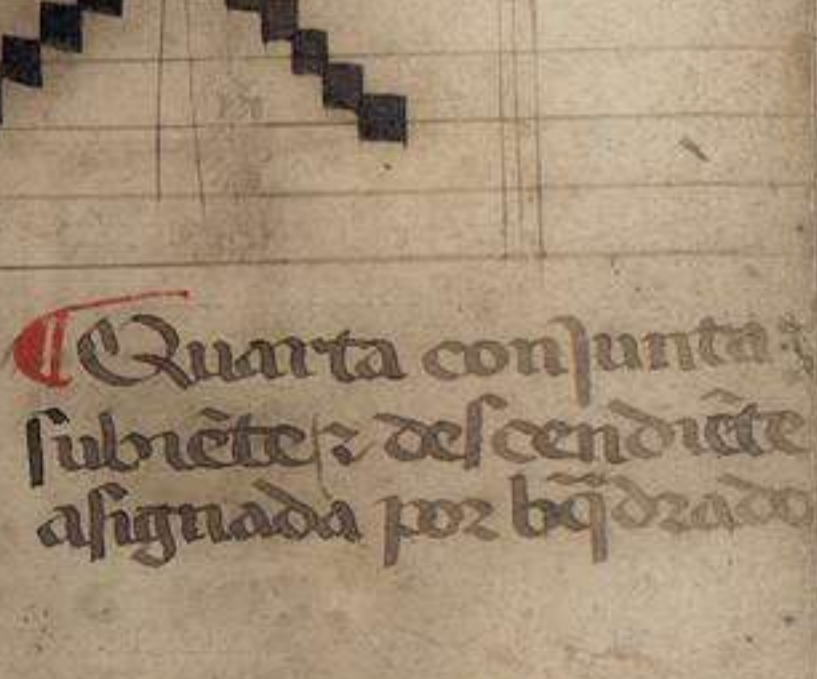 ¶ Quarta conjunta:
subiẽte ⁊ descendiẽte
asignada por bq̃drado